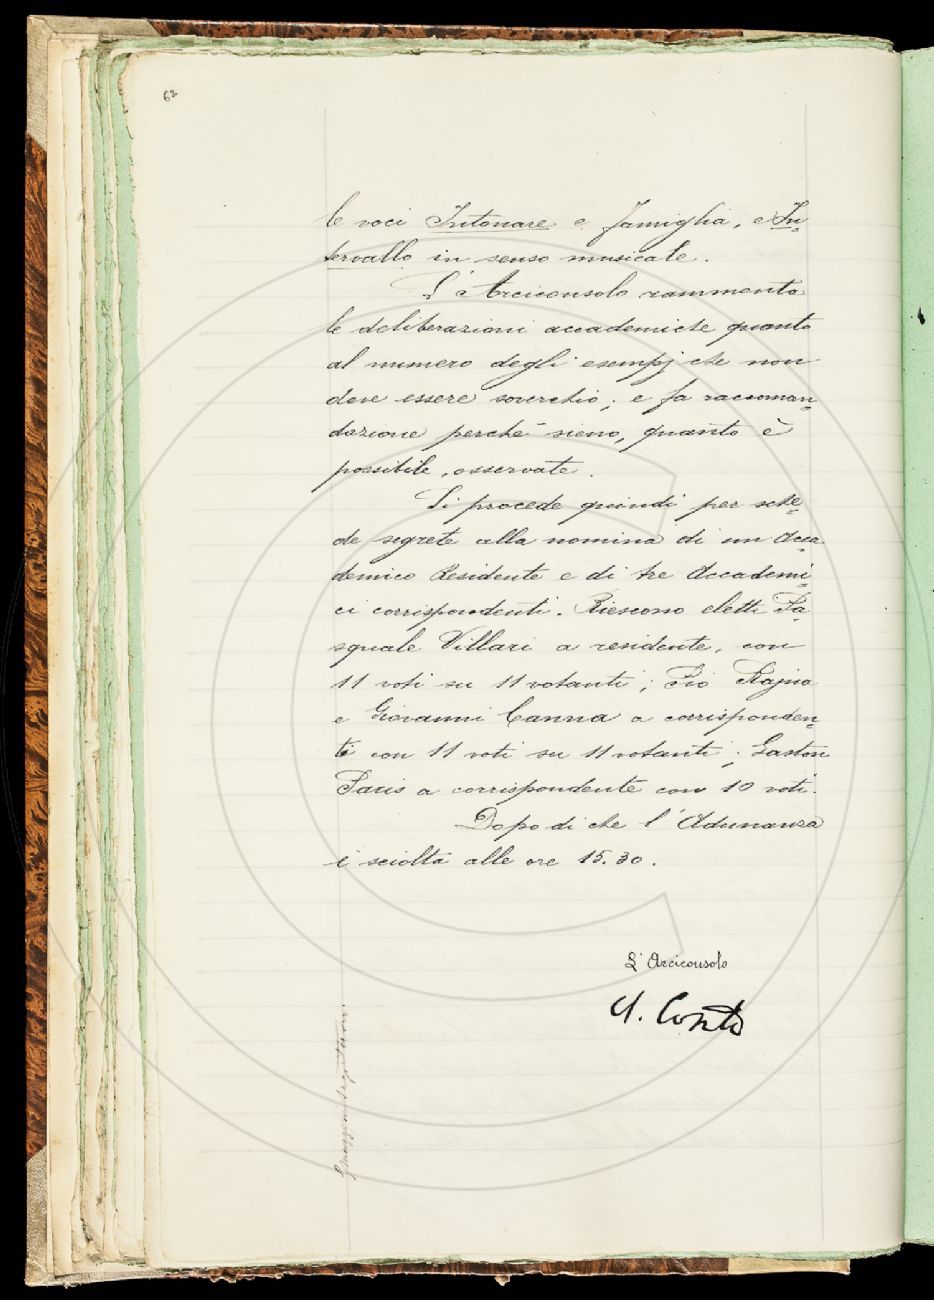 62
le voci Intonare e famiglia, e In=
tervallo in senso musicale.
L'Arciconsolo rammenta
le deliberazioni accademiche quanto
al numero degli esempj che non
deve essere soverchio; e fa raccoman=
dazione perchè sieno, quanto è
possibile, osservate.
Si procede quindi per sche=
de segrete alla nomina di un Acca
demico Residente e di tre Accademi=
ci corrispondenti. Riescono eletti Pa=
squale Villari a residente, con
11 voti su 11 votanti; Pio Rajna
e Giovanni Canna a corisponden=
ti con 11 voti su 11 votanti; Gaston
Paris a corrispondente con 10 voti.
Dopo di che l'Adunanza
è sciolta alle ore 15.30.
L'Arciconsolo
A. Conti